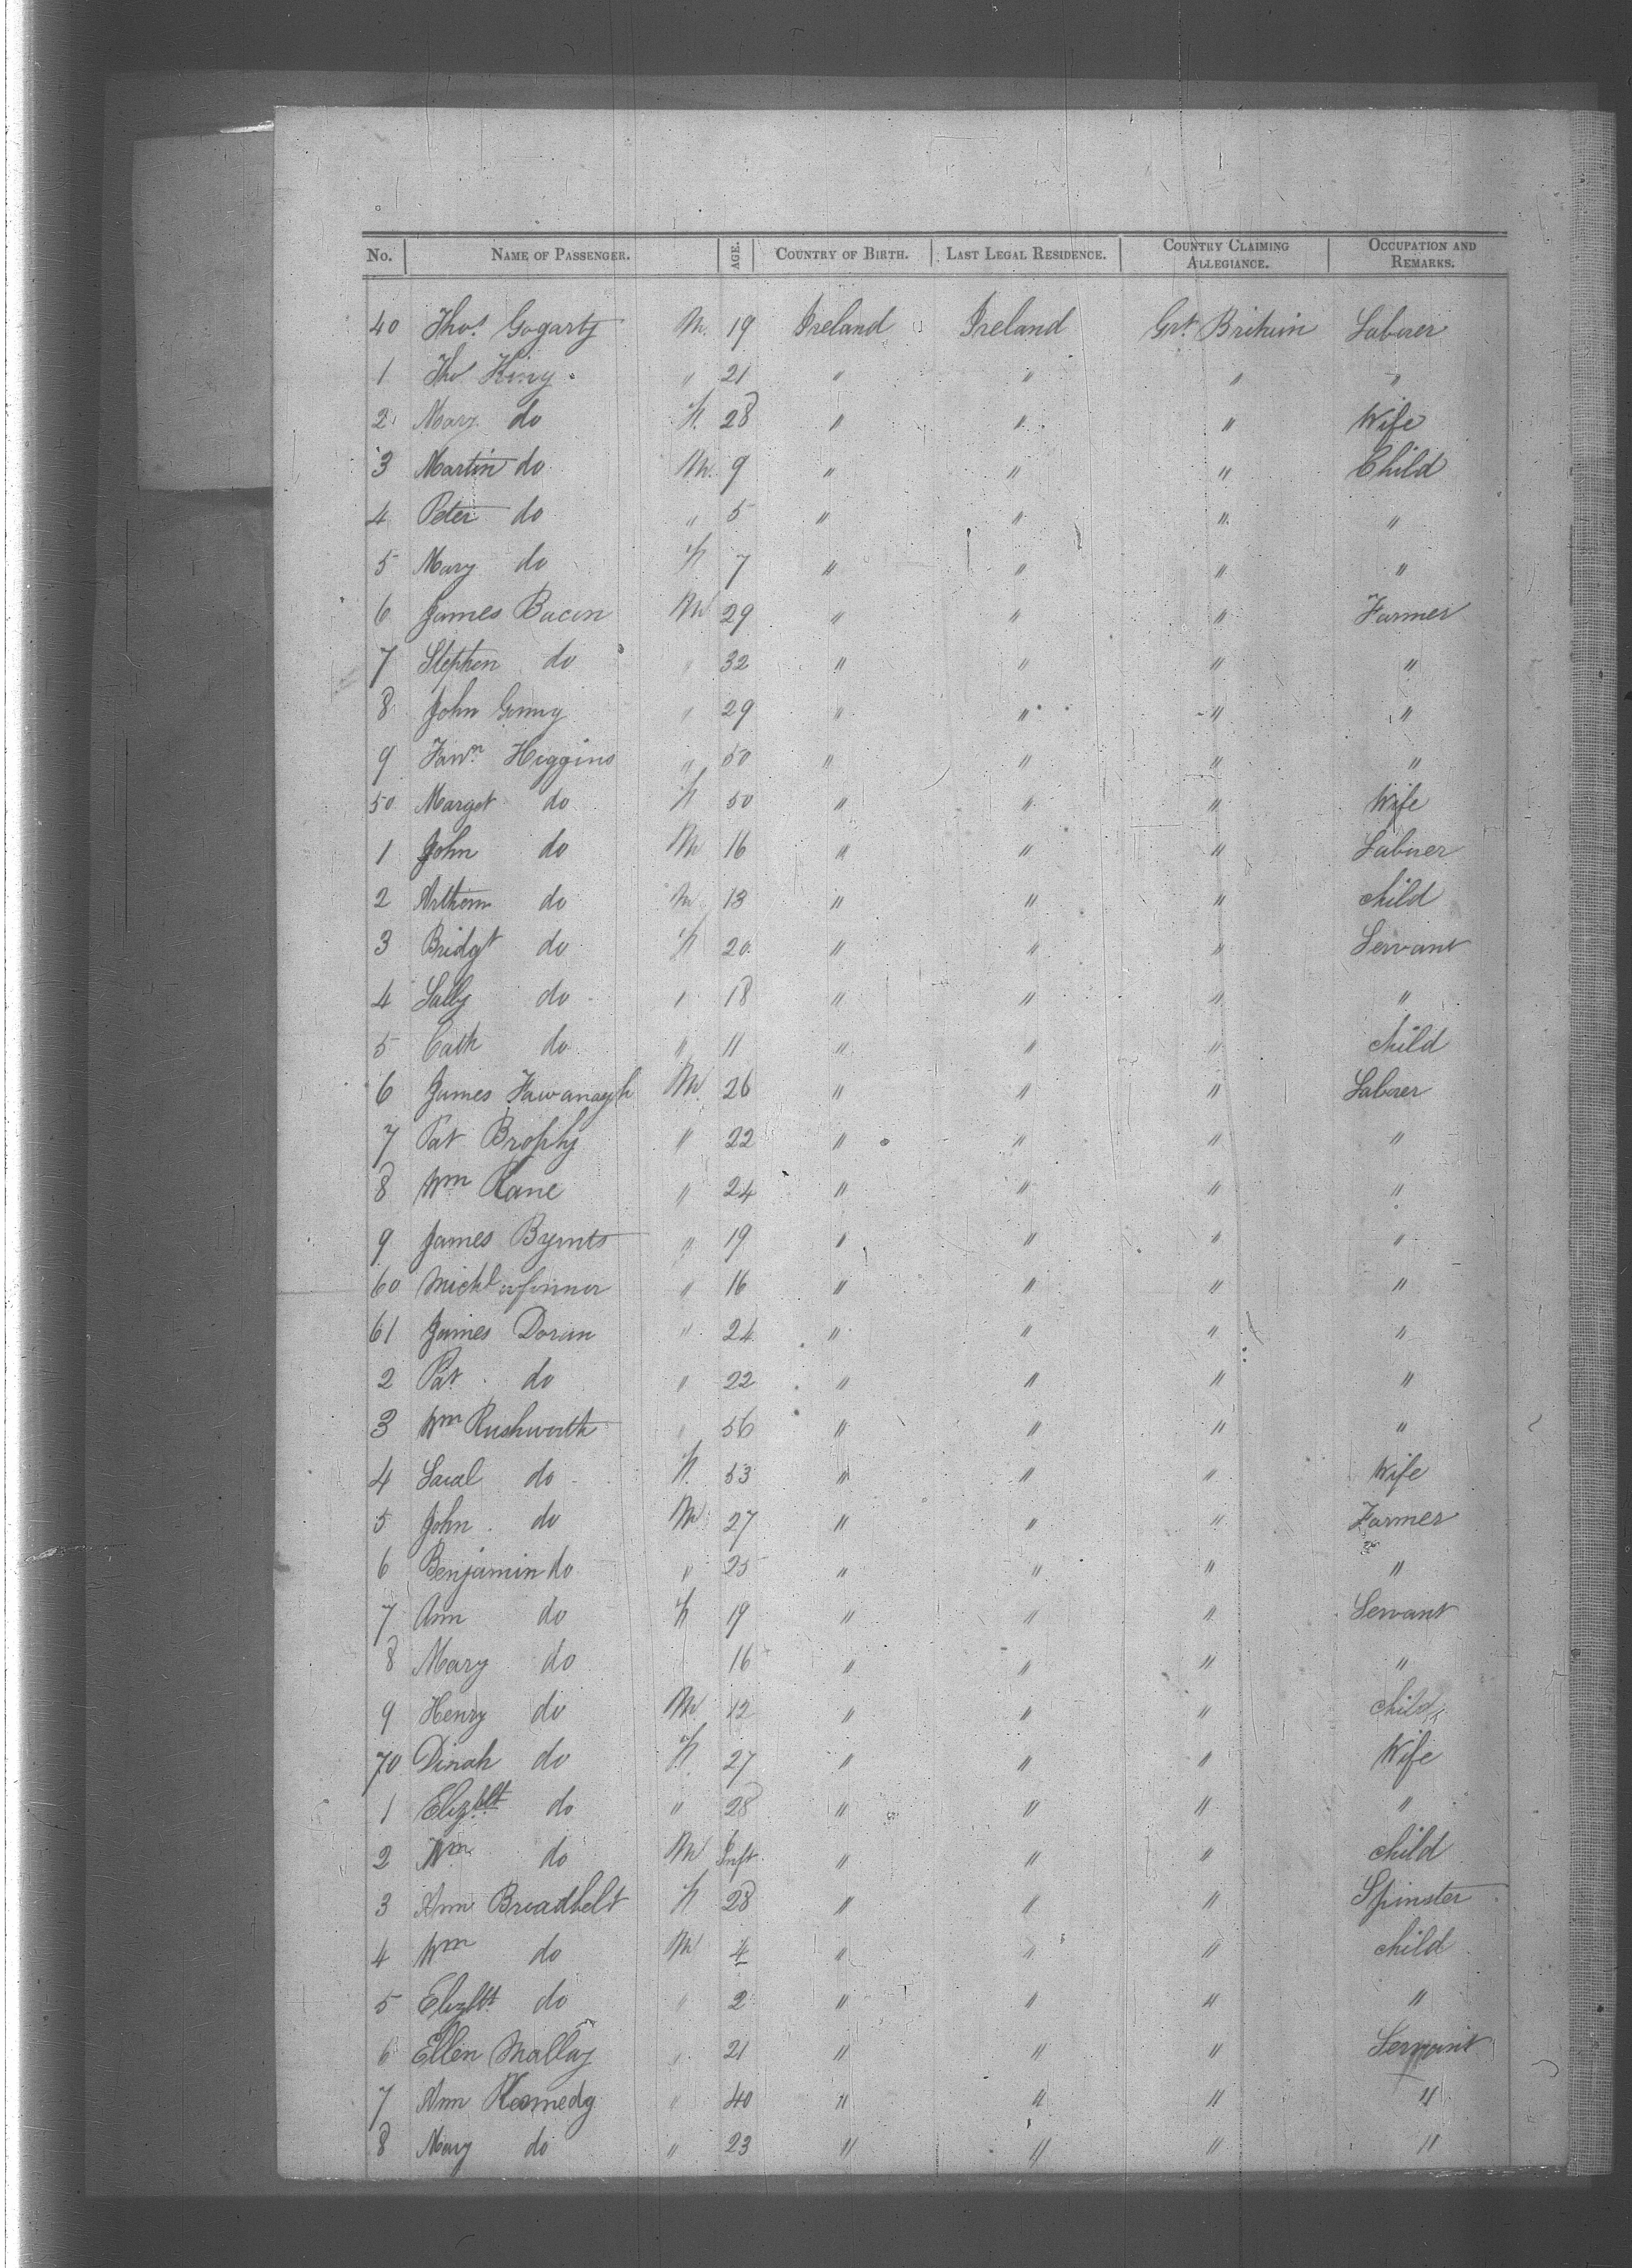 No. NAME OF PASSENGER. AGE. COUNTRY OF BIRTH. LAST LEGAL RESIDENCE. COUNTRY CLAIMING ALLEGIANCE. OCCUPATION AND REMARKS.
40 Thos Gogarty M. 19 Ireland Ireland Grt. Britain Laborer
1 Thos King " 21 " " " "
2 Mary do F. 28 " " " Wife
3 Martin do M. 9 " " " Child
4 Peter do " 5 " " " "
5 Mary do F 7 " " " "
6 James Bacon M 29 " " " Farmer
7 Stephen do " 32 " " " "
8 John " 29 " " " "
9 Higgins " 50 " " " "
50 Margt do F 50 " " " Wife
1 John do M 16 " " " Laborer
2 do M 13 " " " child
3 Bridgt do F 20 " " " Servant
4 Sally do " 18 " " " "
5 Cath do " 11 " " " child
6 James M 26 " " " Laborer
7 Pat Brophy " 22 " " " "
8 Wm Kane " 24 " " " "
9 James " 19 " " " "
60 Michl " 16 " " " "
61 James Doran " 24 " " " "
2 Pat do " 22 " " " "
3 Wm Rushworth " 56 " " " "
4 do F. 53 " " " Wife
5 John do M 27 " " " Farmer
6 Benjamin do " 25 " " " "
7 Ann do F 19 " " " Servant
8 Mary do 16 " " " "
9 Henry do M 12 " " " child
70 Dinah do F. 27 " " " Wife
1 Elizbt do " 28 " " " "
2 Wm do M Inft. " " " child
3 Ann Broadbelt F 28 " " " Spinster
4 Wm do M 4 " " " child
5 Elizbt do " 2 " " " "
6 Ellen Mallay " 21 " " " Servant
7 Ann Kennedy " 40 " " " "
8 Mary do " 23 " " " "